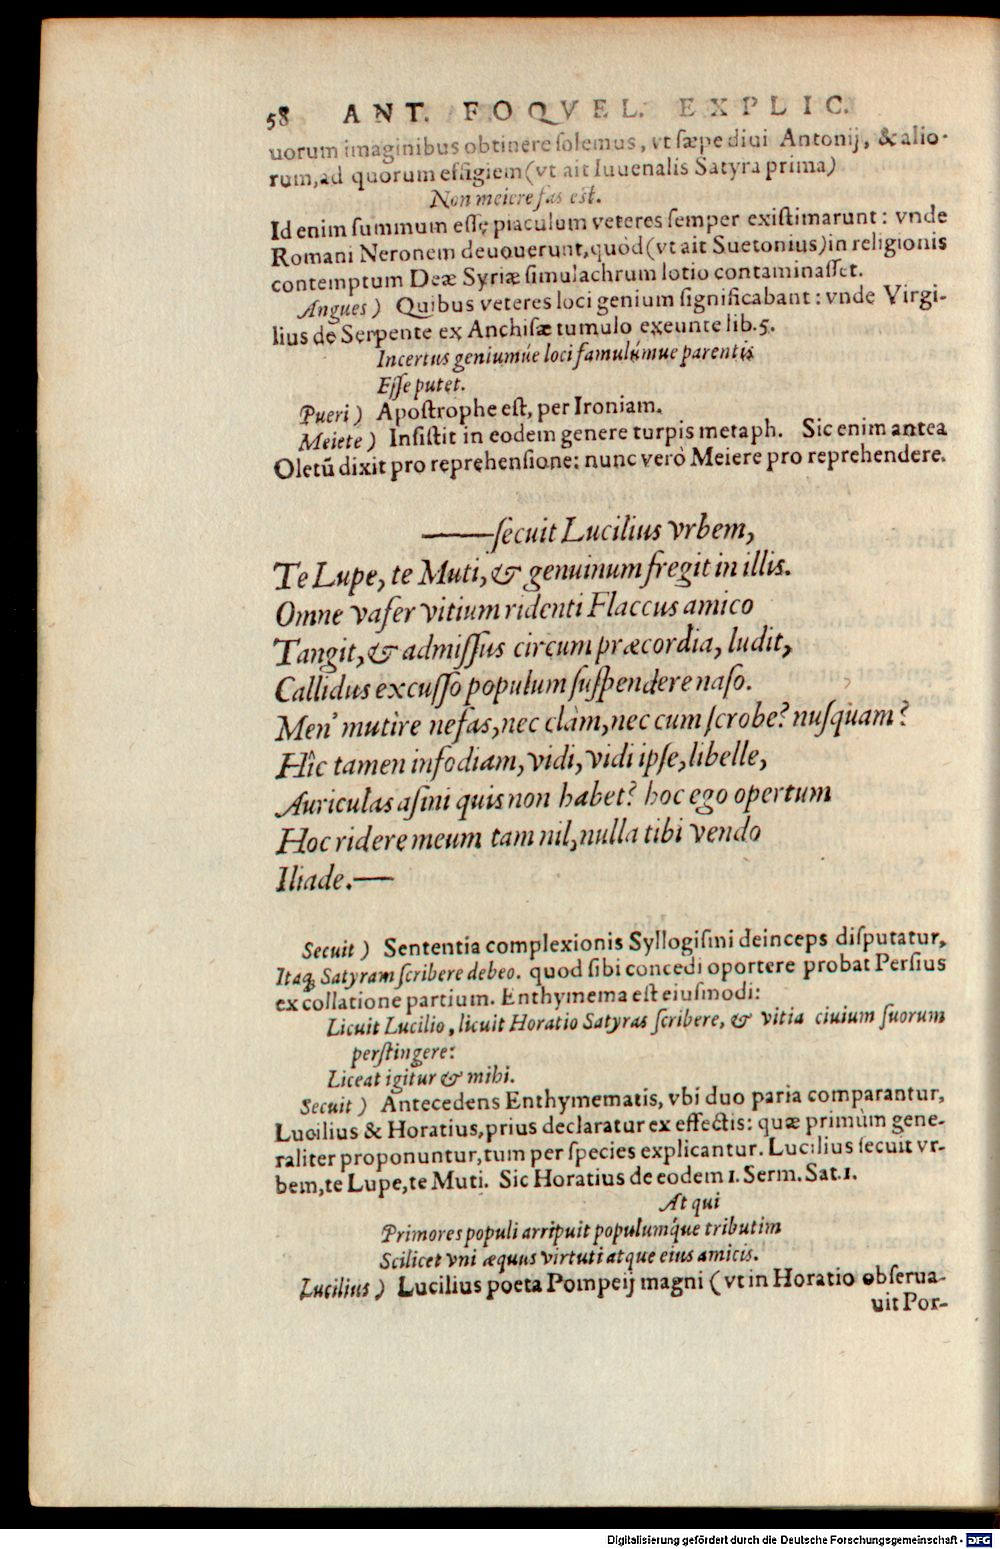 58 ANT. FOQVEL. EXPLIC.
uorum imaginibus obtinere ſolemus, vt ſæpe diui Antonij, & alio-
rum, ad quorum effigiem (vt ait Iuuenalis Satyra prima)
Non meiere fas est.
Id enim ſummum eſſę piaculum veteres ſemper exiſtimarunt: vnde
Romani Neronem deuouerunt, quòd (vt ait Suetonius) in religionis
contemptum Deæ Syriæ ſimulachrum lotio contaminaſſet.
Angues) Quibus veteres loci genium ſignificabant: vnde Virgi-
lius de Serpente ex Anchiſæ tumulo exeunte lib. 5.
Incertus geniumúe loci famulúmue parentis
Eſſe putet.
Pueri) Apoſtrophe eſt, per Ironiam.
Meiete) Inſiſtit in eodem genere turpis metaph. Sic enim antea
Oletū dixit pro reprehenſione: nunc verò Meiere pro reprehendere.
——ſecuit Lucilius vrbem,
Te Lupe, te Muti, & genuinum fregit in illis.
Omne vafer vitium ridenti Flaccus amico
Tangit, & admiſſus circum præcordia, ludit,
Callidus excuſſo populum ſuſpendere naſo.
Men' mutire nefas, nec clàm, nec cum ſcrobe? nuſquam?
Hîc tamen infodiam, vidi, vidi ipſe, libelle,
Auriculas aſini quis non habet? hoc ego opertum
Hoc ridere meum tam nil, nulla tibi vendo
Iliade.——
Secuit) Sententia complexionis Syllogiſmi deinceps diſputatur,
Itaq; Satyram ſcribere debeo. quod ſibi concedi oportere probat Perſius
ex collatione partium. Enthymema eſt eiuſmodi:
Licuit Lucilio, licuit Horatio Satyras ſcribere, & vitia ciuium ſuorum
perſtingere:
Liceat igitur & mihi.
Secuit) Antecedens Enthymematis, vbi duo paria comparantur,
Lucilius & Horatius, prius declaratur ex effectis: quæ primùm gene-
raliter proponuntur, tum per ſpecies explicantur. Lucilius ſecuit vr-
bem, te Lupe, te Muti. Sic Horatius de eodem 1. Serm. Sat. 1.
At qui
Primores populi arripuit populumq́ue tributim
Scilicet vni æquus virtuti atque eius amicis.
Lucilius) Lucilius poeta Pompeij magni (vt in Horatio obſerua-
uit Por-
Digitalisierung gefördert durch die Deutsche Forschungsgemeinschaft - DFG